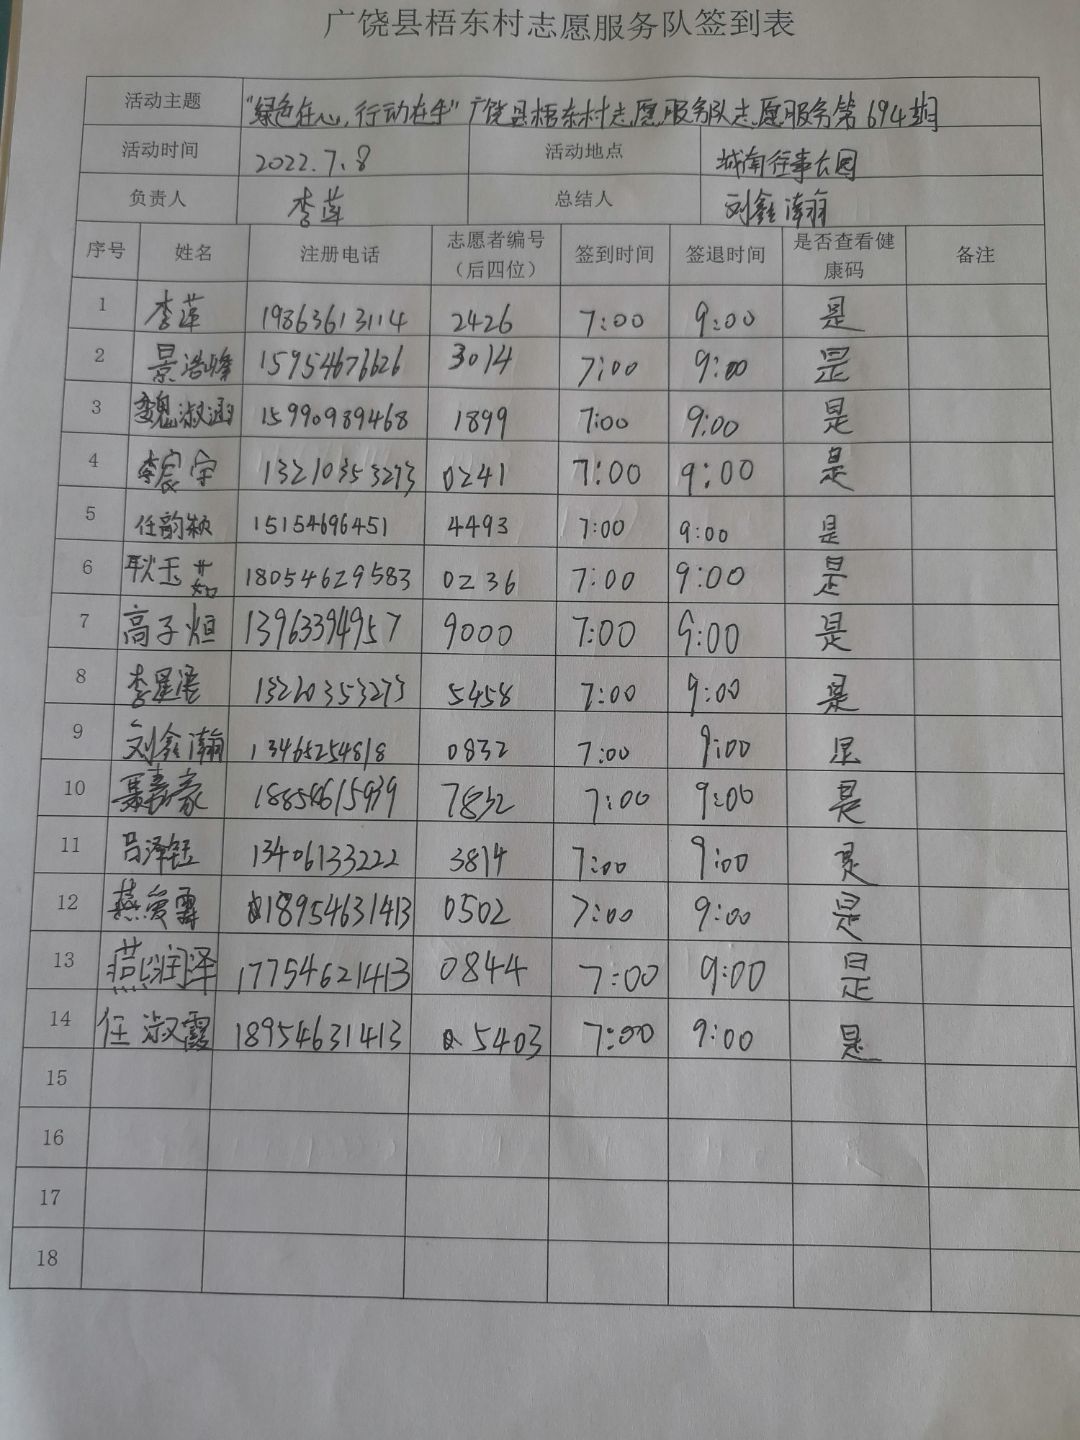 广饶县梧东村志愿服务队签到表
活动主题 "绿色在心,行动在手"广饶县梧东村志愿服务队志愿服务第694期
活动时间 2022.7.8 活动地点 城南往事公园
负责人 李莲 总结人 刘鑫瀚
序号 姓名 注册电话 志愿者编号(后四位) 签到时间 签退时间 是否查看健康码 备注
1 李莲 19863613114 2426 7:00 9:00 是
2 景浩峰 15954676626 3014 7:00 9:00 是
3 魏淑涵 15990989468 1899 7:00 9:00 是
4 李宸宇 13210353273 0241 7:00 9:00 是
5 任韵颖 15154696451 4493 7:00 9:00 是
6 耿玉茹 18054629583 0236 7:00 9:00 是
7 高子烜 13963394957 9000 7:00 9:00 是
8 李星语 13210353273 5458 7:00 9:00 是
9 刘鑫瀚 13465254818 0832 7:00 9:00 是
10 聂嘉豪 18854615939 7832 7:00 9:00 是
11 吕泽钰 13406133222 3814 7:00 9:00 是
12 燕 18954631413 0502 7:00 9:00 是
13 燕润泽 17754621413 0844 7:00 9:00 是
14 任淑霞 18954631413 5403 7:00 9:00 是
15
16
17
18